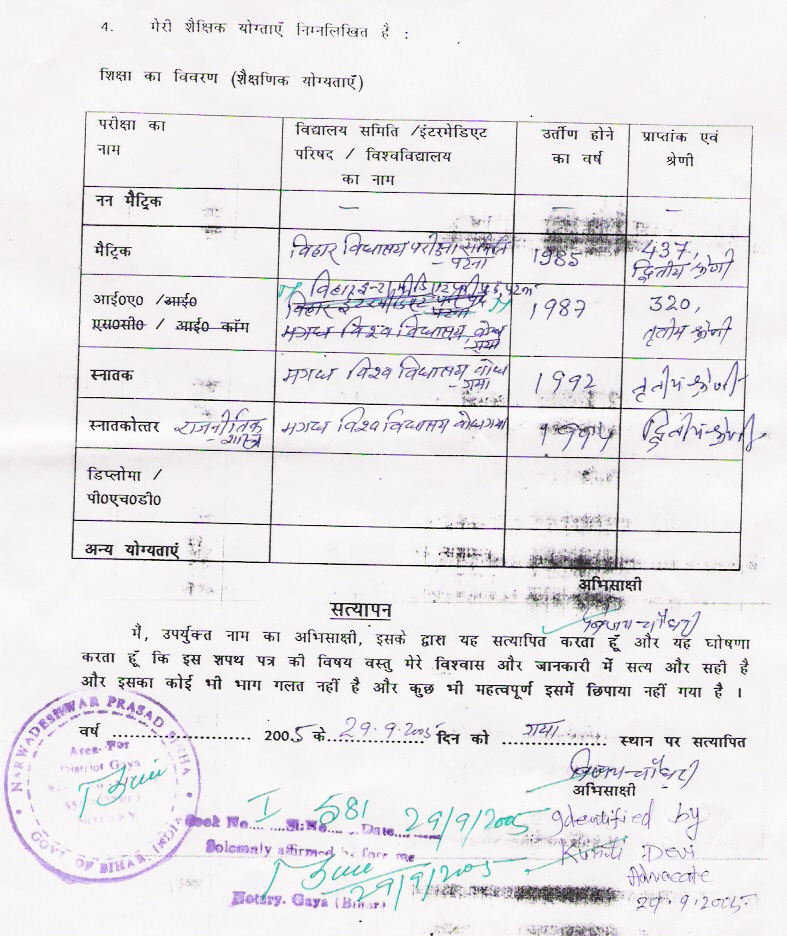 4. मेरी शैक्षिक योग्ताएँ निम्नलिखित है :
शिक्षा का विवरण (शैक्षणिक योग्यताएँ)
परीक्षा का
नाम
विद्यालय समिति /इंटरमेडिएट
परिषद / विश्वविद्यालय
का नाम
उर्तीण होने
का वर्ष
प्राप्तांक एवं
श्रेणी
नन मैट्रिक — — —
मैट्रिक
बिहार विद्यालय परीक्षा समिति
- पटना
1985
437,
द्वितीय श्रेणी
आई०ए० /आई०
एस०सी० / आई० कॉम
मगध विश्व विद्यालय, बोध
गया
1987
320,
तृतीय श्रेणी
स्नातक
मगध विश्व विद्यालय बोध
- गया
1992
तृतीय श्रेणी
स्नातकोत्तर राजनीतिक
शास्त्र
मगध विश्व विद्यालय बोधगया
1994
द्वितीय श्रेणी
डिप्लोमा /
पी०एच०डी०
अन्य योग्यताएं
अभिसाक्षी
सत्यापन
मै, उपर्युक्त नाम का अभिसाक्षी, इसके द्वारा यह सत्यापित करता हूँ और यह घोषणा
करता हूँ कि इस शपथ पत्र की विषय वस्तु मेरे विश्वास और जानकारी में सत्य और सही है
और इसका कोई भी भाग गलत नहीं है और कुछ भी महत्वपूर्ण इसमें छिपाया नहीं गया है ।
वर्ष ........................ 2005 के 29.9.2005 दिन को गया स्थान पर सत्यापित
अभिसाक्षी
NARWADESHWAR PRASAD SINHA
Area For
District Gaya
GOVT OF BIHAR, INDIA
Book No. I Sl. No. 581 Date 29/9/2005
Solemnly affirmed before me
29/9/2005
Notary. Gaya (Bihar)
Identified by
Kunti Devi
Advocate
29.9.2005